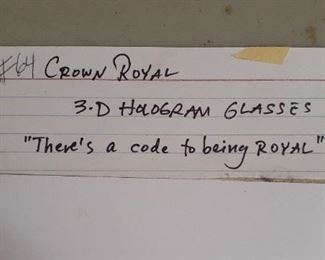 #64 CROWN ROYAL
3-D HOLOGRAM GLASSES
"There's a code to being ROYAL"